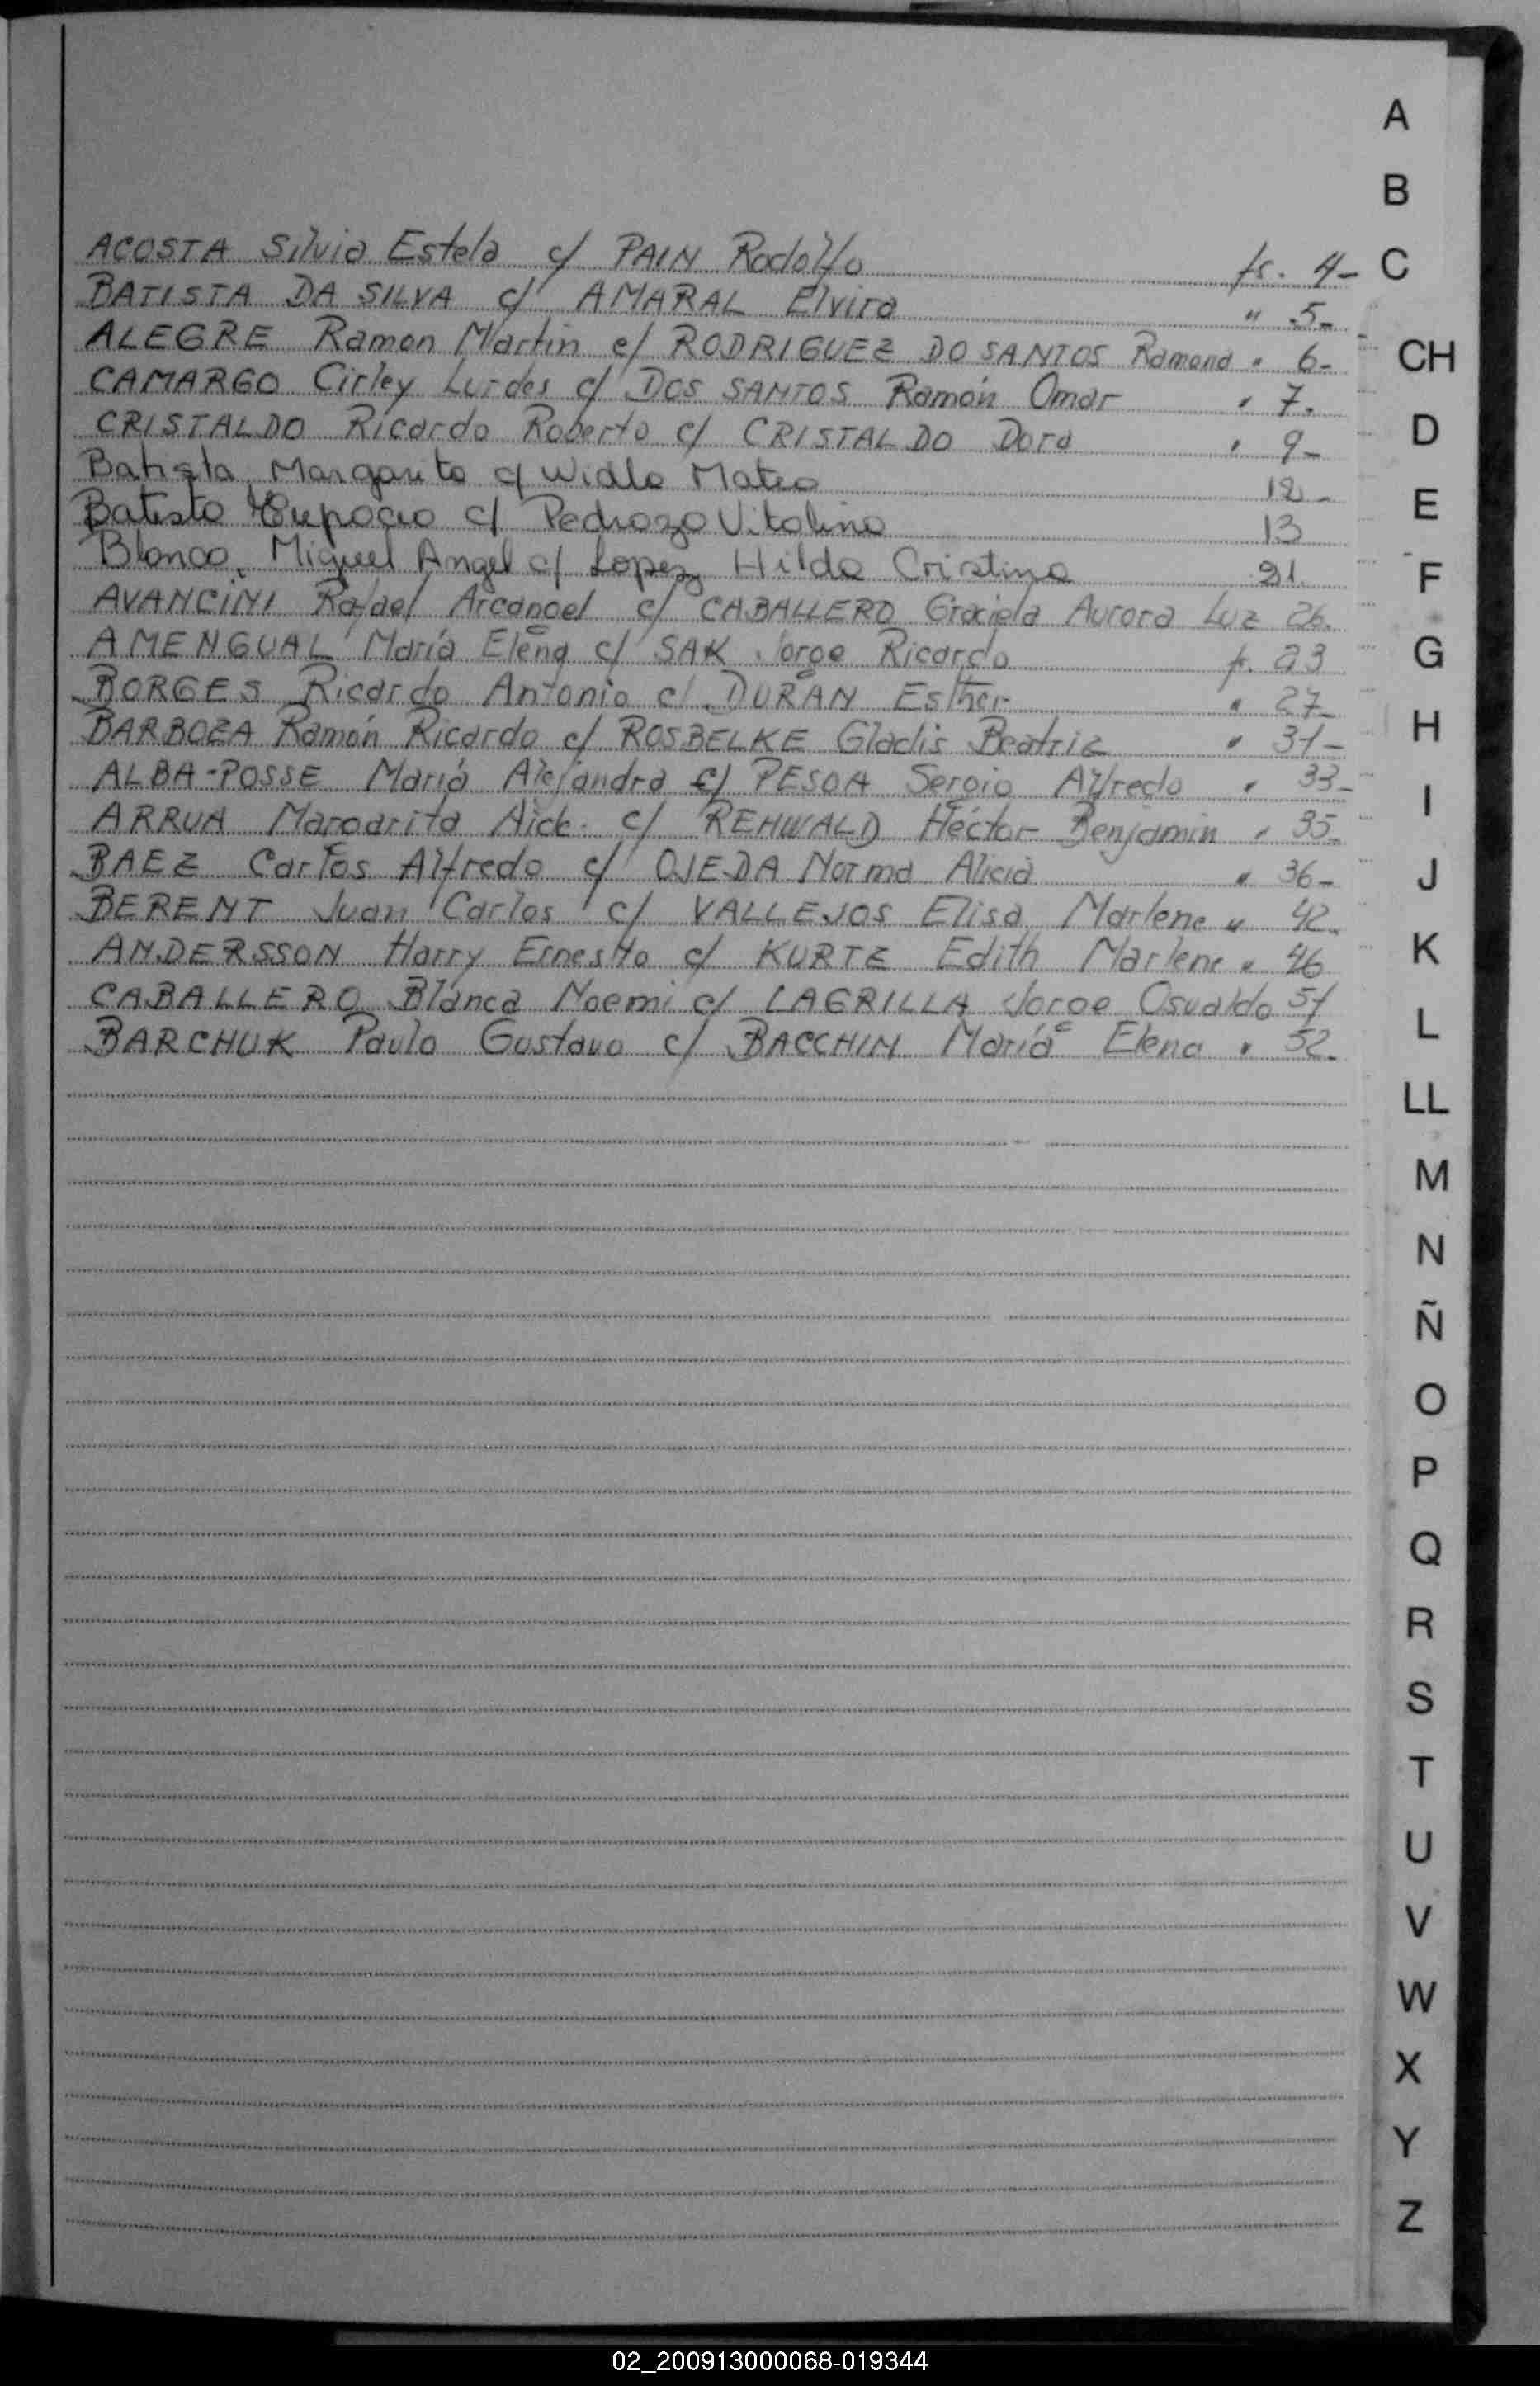 ACOSTA Silvia Estela c/ PAIN Rodolfo fs. 4-
BATISTA DA SILVA c/ AMARAL Elvira " 5-
ALEGRE Ramon Martin c/ RODRIGUEZ DO SANTOS Ramona " 6-
CAMARGO Cirley Lurdes c/ DOS SANTOS Ramón Omar " 7.
CRISTALDO Ricardo Roberto c/ CRISTALDO Dora " 9-
Batista, Margarita c/ Widla Mateo 12-
Batista c/ Pedrozo Vitalina 13
Blanco, Miguel Angel c/ Lopez, Hilda Cristina 21.
AVANCINI Rafael Arcangel c/ CABALLERO Graciela Aurora Luz 26.
AMENGUAL María Elena c/ SAK Jorge Ricardo f. 23
BORGES Ricardo Antonio c/ DURAN Esther " 27-
BARBOZA Ramón Ricardo c/ ROSBELKE Gladis Beatriz " 31-
ALBA-POSSE María Alejandra c/ PESOA Sergio Alfredo " 33-
ARRUA Margarita Aide c/ REHWALD Héctor Benjamin " 35-
BAEZ Carlos Alfredo c/ OJEDA Norma Alicia " 36-
BERENT Juan Carlos c/ VALLEJOS Elisa Marlene " 42-
ANDERSSON Harry Ernesto c/ KURTZ Edith Marlene " 46
CABALLERO Blanca Noemi c/ LAGRILLA Jorge Osvaldo 51
BARCHUK Paulo Gustavo c/ BACCHIN María Elena " 52-
A
B
C
CH
D
E
F
G
H
I
J
K
L
LL
M
N
Ñ
O
P
Q
R
S
T
U
V
W
X
Y
Z
02_200913000068-019344